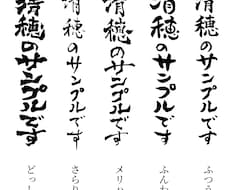 清穂のサンプルです
清穂のサンプルです
清穂のサンプルです
清穂のサンプルです
清穂のサンプルです
ふつう
ふんわ
メリハ
さらり
どっし